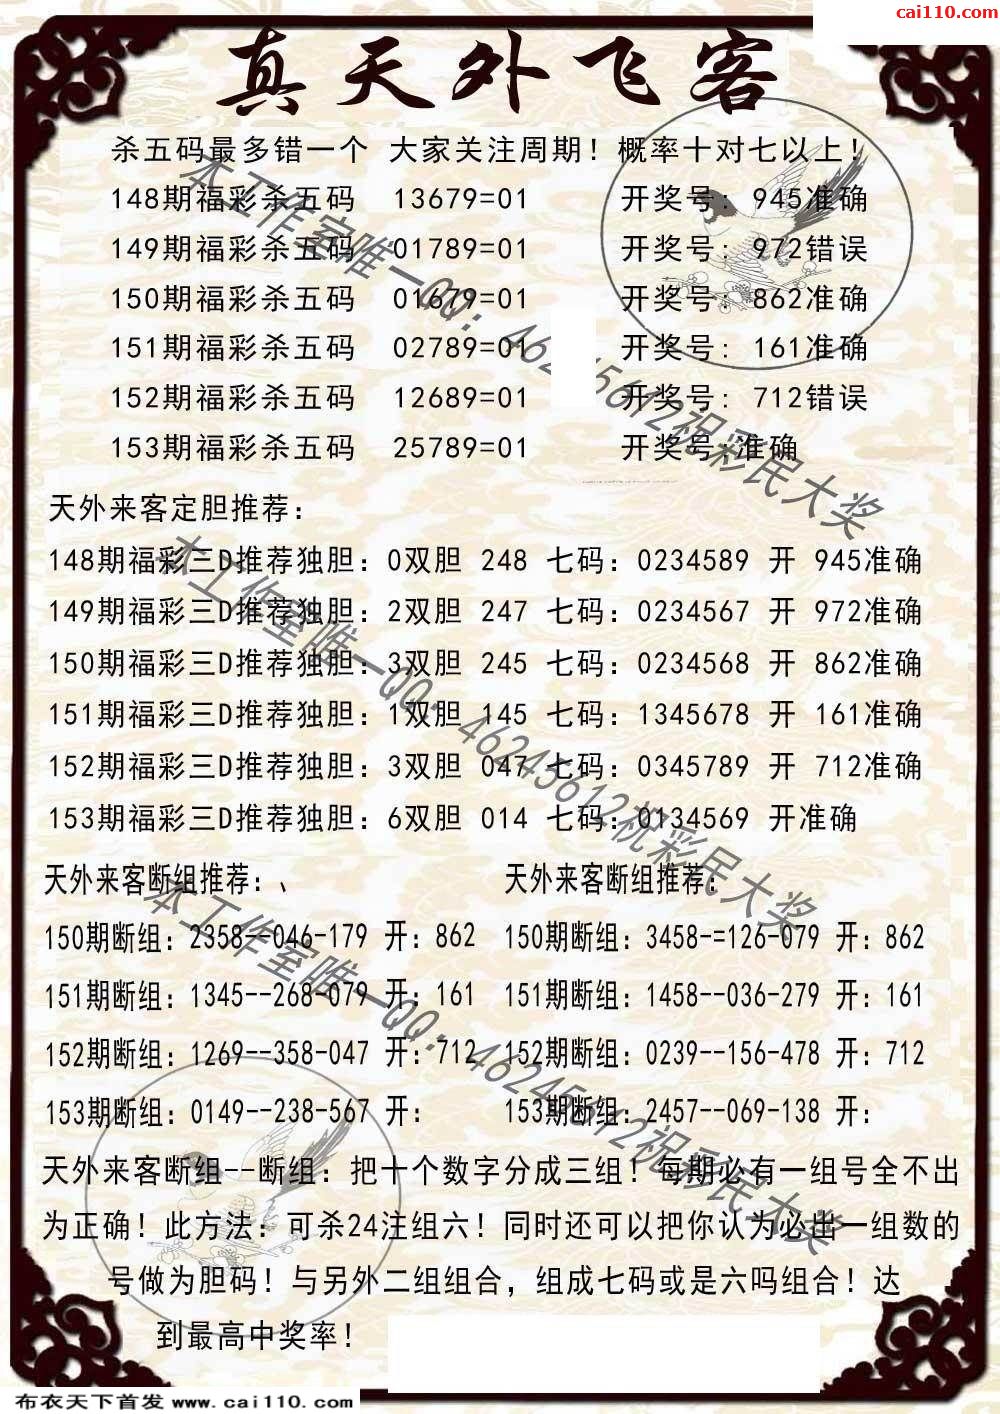 cai110.com
真天外飞客
杀五码最多错一个 大家关注周期！概率十对七以上！
148期福彩杀五码 13679=01 开奖号: 945准确
149期福彩杀五码 01789=01 开奖号: 972错误
150期福彩杀五码 01679=01 开奖号: 862准确
151期福彩杀五码 02789=01 开奖号: 161准确
152期福彩杀五码 12689=01 开奖号: 712错误
153期福彩杀五码 25789=01 开奖号:准确
天外来客定胆推荐:
148期福彩三D推荐独胆: 0双胆 248 七码: 0234589 开 945准确
149期福彩三D推荐独胆: 2双胆 247 七码: 0234567 开 972准确
150期福彩三D推荐独胆: 3双胆 245 七码: 0234568 开 862准确
151期福彩三D推荐独胆: 1双胆 145 七码: 1345678 开 161准确
152期福彩三D推荐独胆: 3双胆 047 七码: 0345789 开 712准确
153期福彩三D推荐独胆: 6双胆 014 七码: 0134569 开准确
天外来客断组推荐:、 天外来客断组推荐:
150期断组: 2358--046-179 开: 862 150期断组: 3458-=126-079 开: 862
151期断组: 1345--268-079 开: 161 151期断组: 1458--036-279 开: 161
152期断组: 1269--358-047 开: 712 152期断组: 0239--156-478 开: 712
153期断组: 0149--238-567 开: 153期断组: 2457--069-138 开:
天外来客断组--断组: 把十个数字分成三组！每期必有一组号全不出
为正确！此方法: 可杀24注组六！同时还可以把你认为必出一组数的
号做为胆码！与另外二组组合, 组成七码或是六吗组合！达
到最高中奖率！
本工作室唯一QQ: 46245612祝彩民大奖
本工作室唯一QQ: 46245612祝彩民大奖
本工作室唯一QQ: 46245612祝彩民大奖
布衣天下首发 www.cai110.com